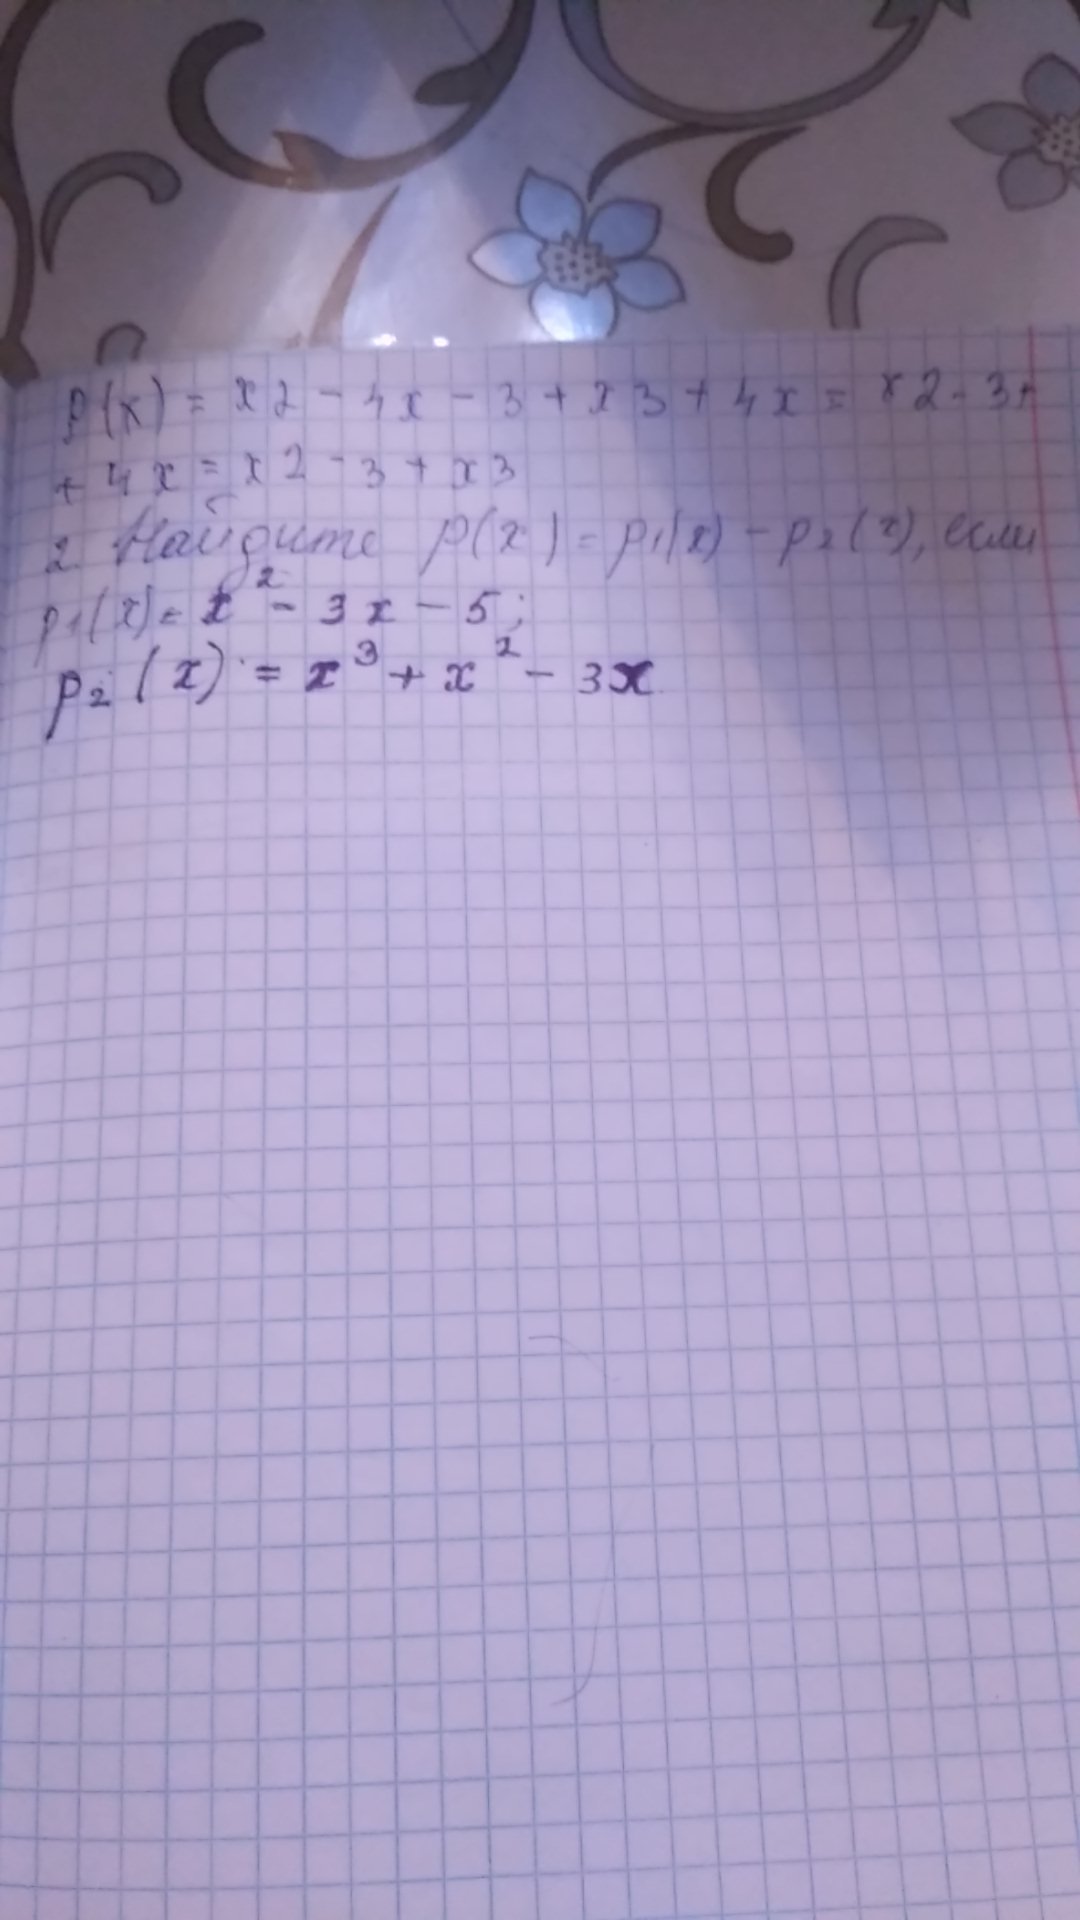 P(x) = x2 - 4x - 3 + x3 + 4x = x2 - 3 +
+ 4x = x2 - 3 + x3
2. Найдите p(x) = p1(x) - p2(x), если
p1(x) = x² - 3x - 5;
p2(x) = x³ + x² - 3x